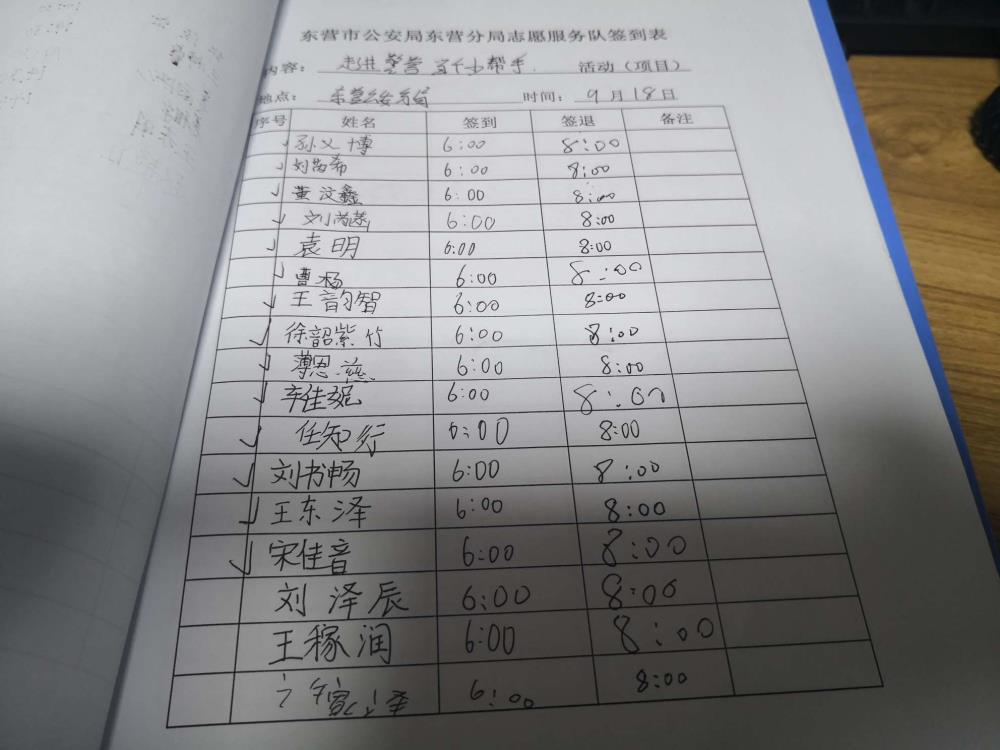 东营市公安局东营分局志愿服务队签到表
内容: 走进警营 帮手 活动(项目)
地点: 东营公安分局 时间: 9月18日
序号 姓名 签到 签退 备注
孙义博 6:00 8:00
刘芮希 6:00 8:00
黄汶鑫 6:00 8:00
刘芮菡 6:00 8:00
袁明 6:00 8:00
曹杨 6:00 8:00
王韵智 6:00 8:00
徐韶紫竹 6:00 8:00
薄恩慈 6:00 8:00
辛佳妮 6:00 8:00
任知行 6:00 8:00
刘书畅 6:00 8:00
王东泽 6:00 8:00
宋佳音 6:00 8:00
刘泽辰 6:00 8:00
王稼润 6:00 8:00
6:00 8:00